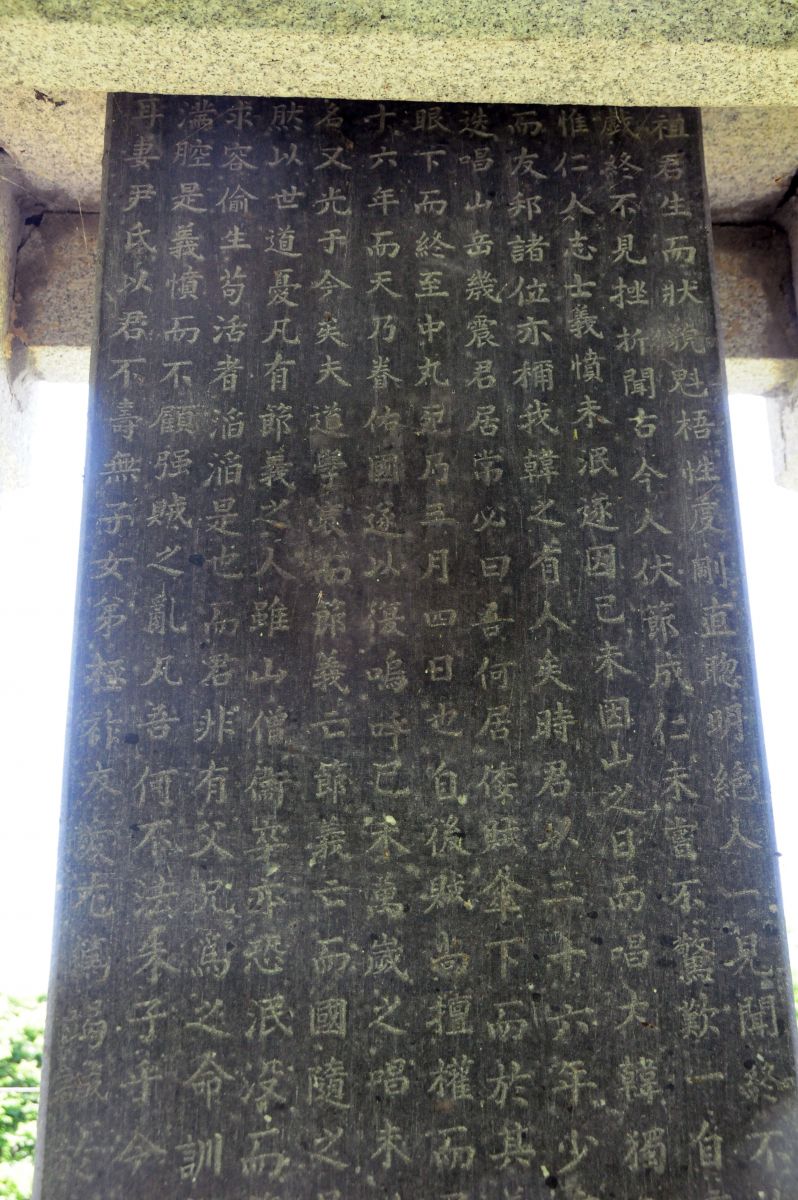 祖君生而狀貌魁梧性度剛直聰明絶人一見聞終不
戱終不見挫折聞古今人伏節成仁未嘗不驚歎一自
惟仁人志士義憤未泯遂因己未因山之日而唱大韓獨
而友邦諸位亦稱我韓之有人矣時君以二十六年少
迭唱山岳幾震君居常必曰吾何居倭賊傘下而於其
眼下而終至中丸死乃三月四日也自後賊益擅權而
十六年而天乃眷佑國遂以復嗚呼己未萬歲之唱未
名又光于今矣夫道學衰而節義亡節義亡而國隨之
然以世道憂凡有節義之人雖山僧衙卒亦恐泯没而
求容偷生苟活者滔滔是也而君非有父兄爲之命訓
滿腔是義憤而不顧强賊之亂凡吾何不法朱子于今
耳妻尹氏以君不壽無子女弟